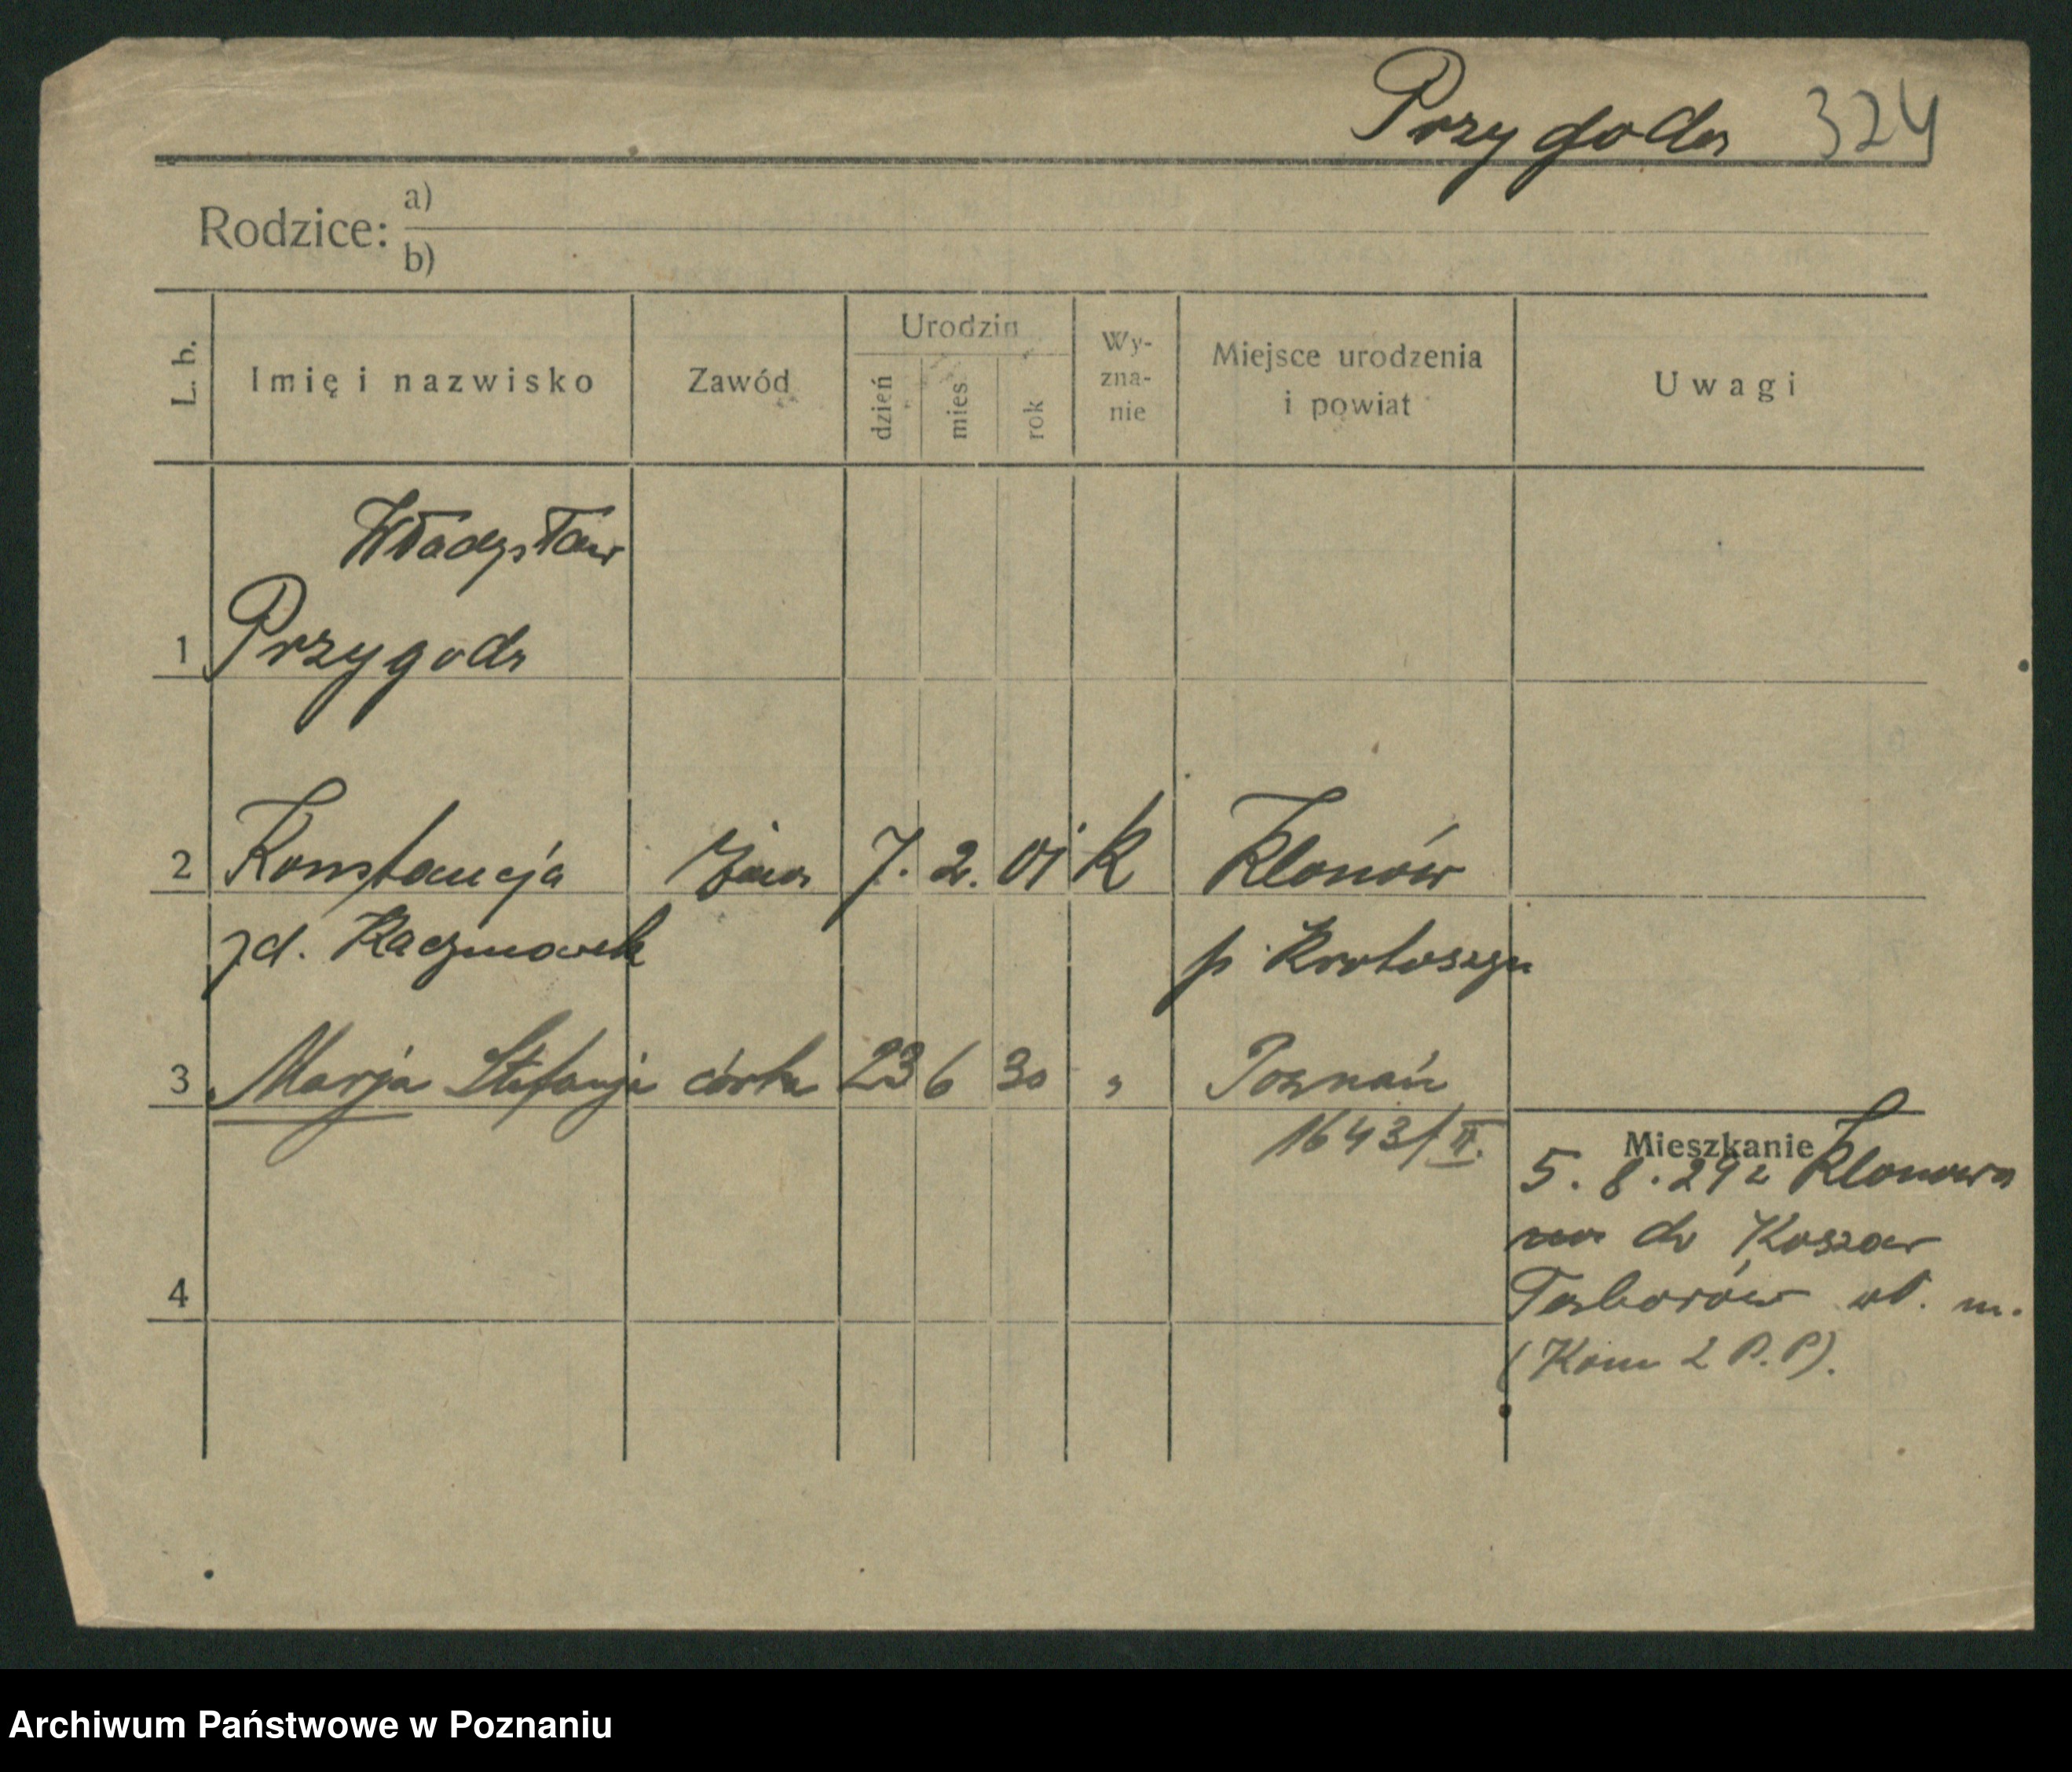 Przygoda 324
Rodzice: a)
b)
L. b.
Imię i nazwisko
Zawód
Urodzin
dzień
mies
rok
Wy-
zna-
nie
Miejsce urodzenia
i powiat
Uwagi
Władysław
1 Przygoda
2 Konstancja żona 7. 2. 01 k Klonów
zd. Kaczmarek p. Krotoszyn
3 Marja Stefanja córka 23 6 30 " Poznań
1643/II.
Mieszkanie
5. 8. 29 z Klonowa
do Koszar
Taborów m.
(Kom 2 P.P).
4
Archiwum Państwowe w Poznaniu